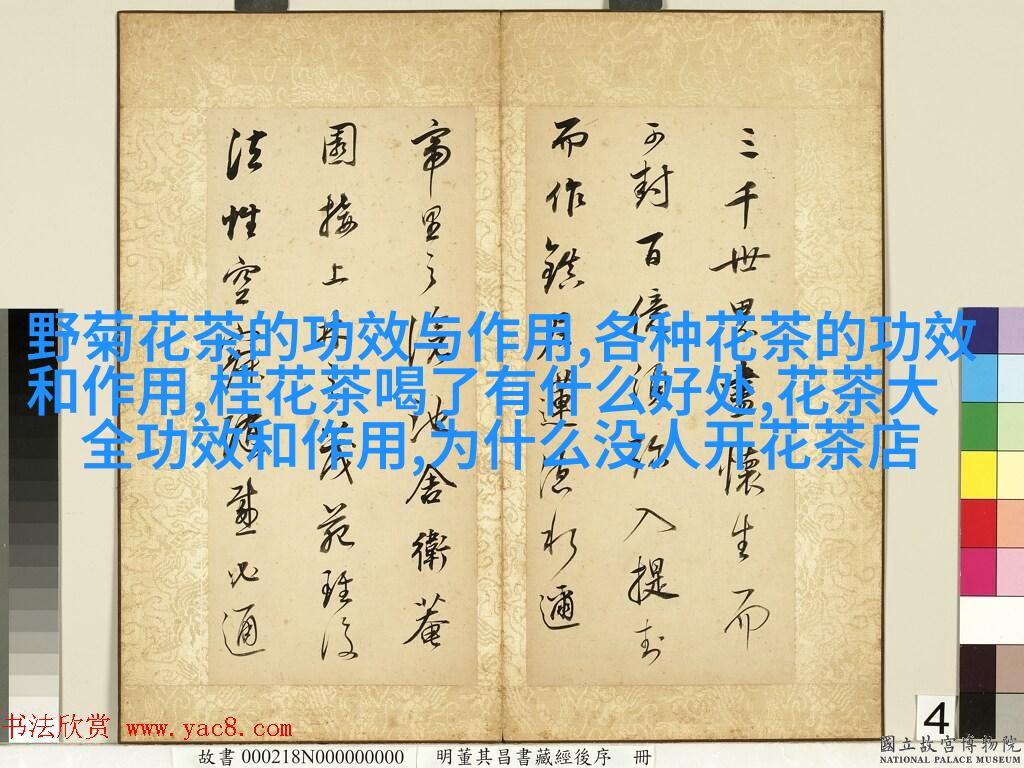 三千世界盡懷生而
可封百億須弥入提封
而作鎮尼蓮德水邇
帝里之滄池舍衛菴
園接上林之茂苑雖復
法性空寂隨感必通
野菊花茶的功效与作用,各种花茶的功效
和作用,桂花茶喝了有什么好处,花茶大
全功效和作用,为什么没人开花茶店
4
书法欣赏 www.yac8.com
故書 000218N000000000 明董其昌書藏經後序 冊
國立故宮博物院
NATIONAL PALACE MUSEUM